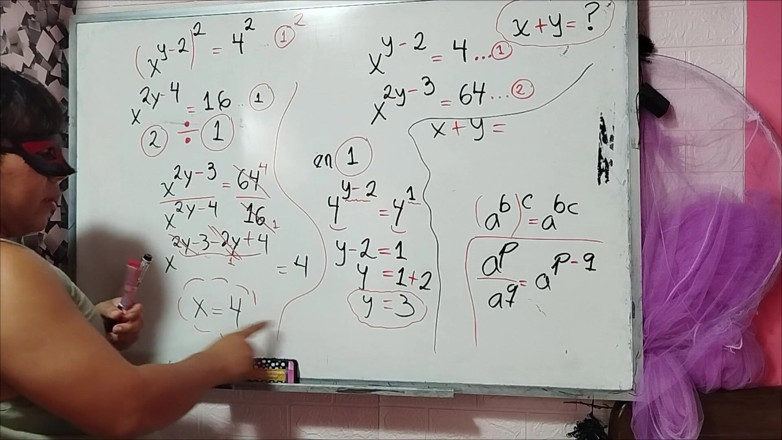 (x^{y-2})^2 = 4^2 ... ①^2
x^{2y-4} = 16 ... ①
② ÷ ①
x^{2y-3} = 64 4
x^{2y-4} 16 1
x^{2y-3-2y+4} = 4
1
x = 4
x + y = ?
x^{y-2} = 4 ... ①
x^{2y-3} = 64 ... ②
x + y =
en ①
4^{y-2} = 4^1
y-2 = 1
y = 1+2
y = 3
(a^b)^c = a^{bc}
a^p/a^q = a^{p-q}